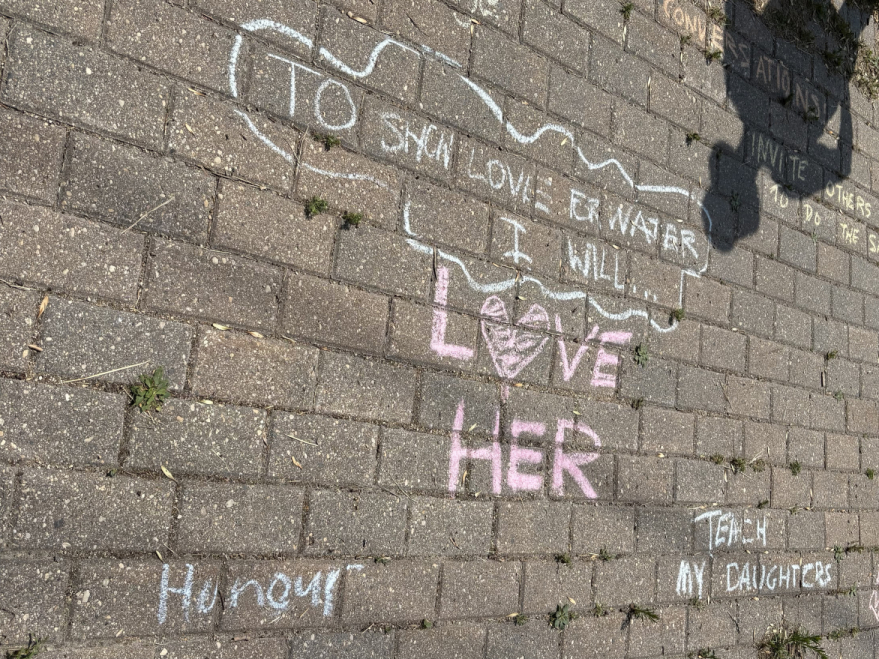 CONVERSATIONS!
INVITE OTHERS
TO DO THE SA
TO SHOW LOVE FOR WATER
I WILL...
LOVE
HER
TEACH
MY DAUGHTERS
Honour